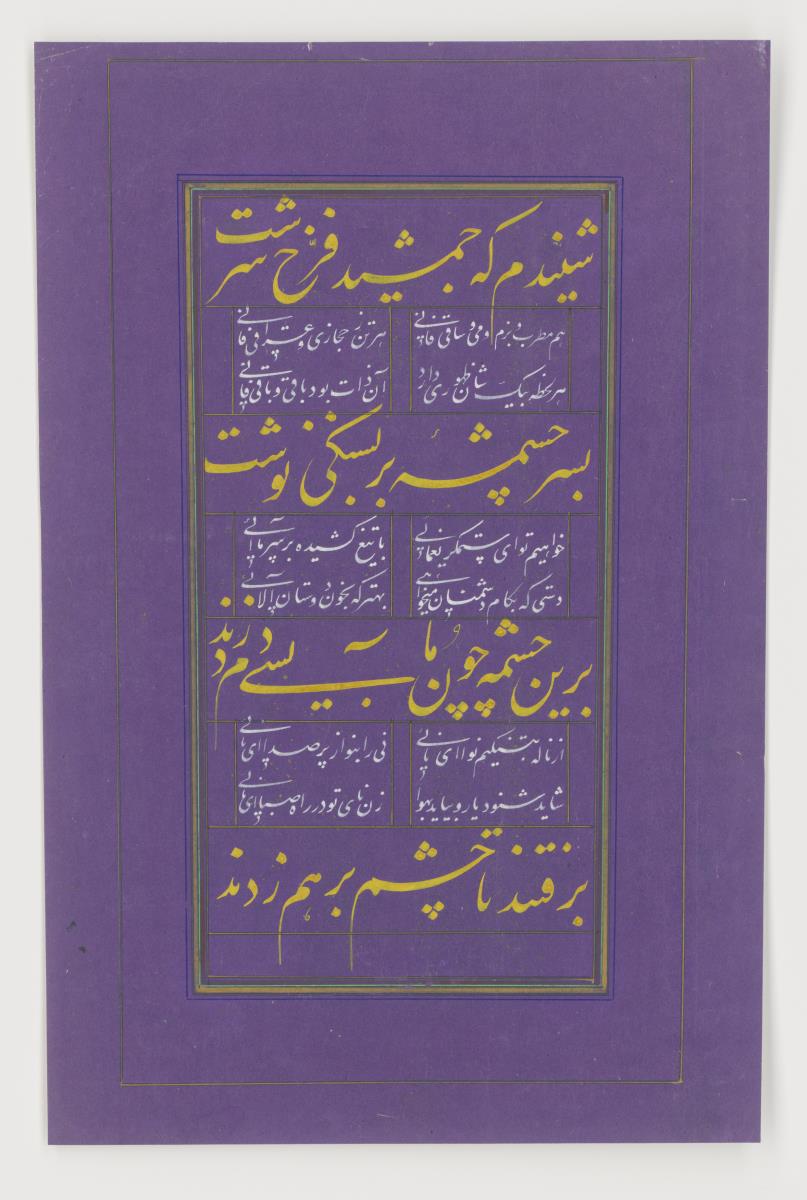 شنیدم که جمشید فرخ سرشت
هم مطرب بزم او می و ساقی فانی
هر تن ز حجازی و عراقی فانی
هر لحظه بیک شان ظهوری دارد
آن ذات بود باقی و باقی فانی
بسر چشمهٔ بر بسنگی نوشت
خواهیم تو ای ستمگر یغمائی
با تیغ کشیده بر سر ما آئی
دستی که بکام دشمنان میخواهی
بهتر که بخون دوستان آلائی
برین چشمه چون ما بسی دم زدند
از ناله
نوا ای نائی
نی را بنواز پر صدا ای نائی
شاید شنود یار و بیاید بهوا
زن نای تو در راه صبا ای نائی
برفتند تا چشم بر هم زدند